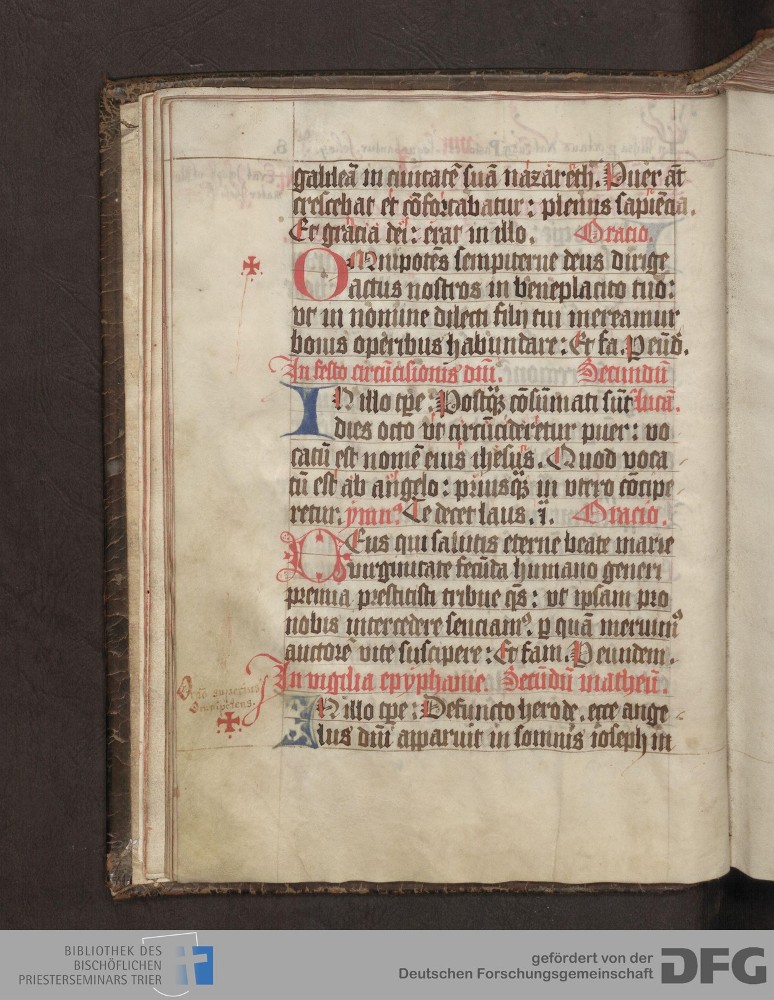 galileā in ciuitatē suā nazareth. Puer aūt
crescebat et cōfortabatur: plenus sapiēcia.
Et gracia dei: erat in illo. Oracio.
OMnipotēs sempiterne deus dirige
actus nostros in beneplacito tuo:
vt in nomine dilecti filij tui mereamur
bonis operibus habundare: Et fa. P eūd.
In festo circūcisionis dn̄i. Secundū
IN illo tꝑe: Postq̄ȝ cōsūmati sūt lucā.
dies octo vt circūcideretur puer: vo
catū est nomē eius ihesus. Quod voca
tū est ab angelo: priusq̄ȝ in vtero cōcipe
retur. ymnꝰ. Te decet laus. ī. Oracio.
DEus qui salutis eterne beate marie
virginitate fecūda humano generi
premia prestitisti tribue q̄s: vt ipsam pro
nobis intercedere senciamꝰ. ꝑ quā meruimꝰ
auctorē vite suscipere: Et fam. P eundem.
In vigilia epyphanie. Secūdū matheū.
IN illo tꝑe: Defuncto herode. ecce ange
lus dn̄i apparuit in somnis ioseph in
Omnipotens:
BIBLIOTHEK DES
BISCHÖFLICHEN
PRIESTERSEMINARS TRIER
gefördert von der
Deutschen Forschungsgemeinschaft DFG